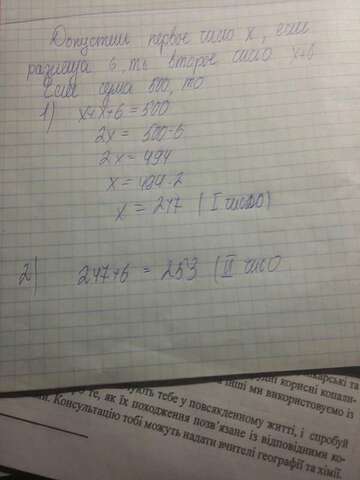 Допустим первое число x, если
разница 6, то второе число x+6
Если сума 500, то
1) x+x+6=500
2x = 500-6
2x = 494
x = 494:2
x = 247 (I число)
2) 247+6 = 253 (II число
корисні копали-
інші ми використовуємо із
тебе у повсякденному житті, і спробуй
те, як їх походження позв'язане із відповідними ко-
Консультацію тобі можуть надати вчителі географії та хімії.